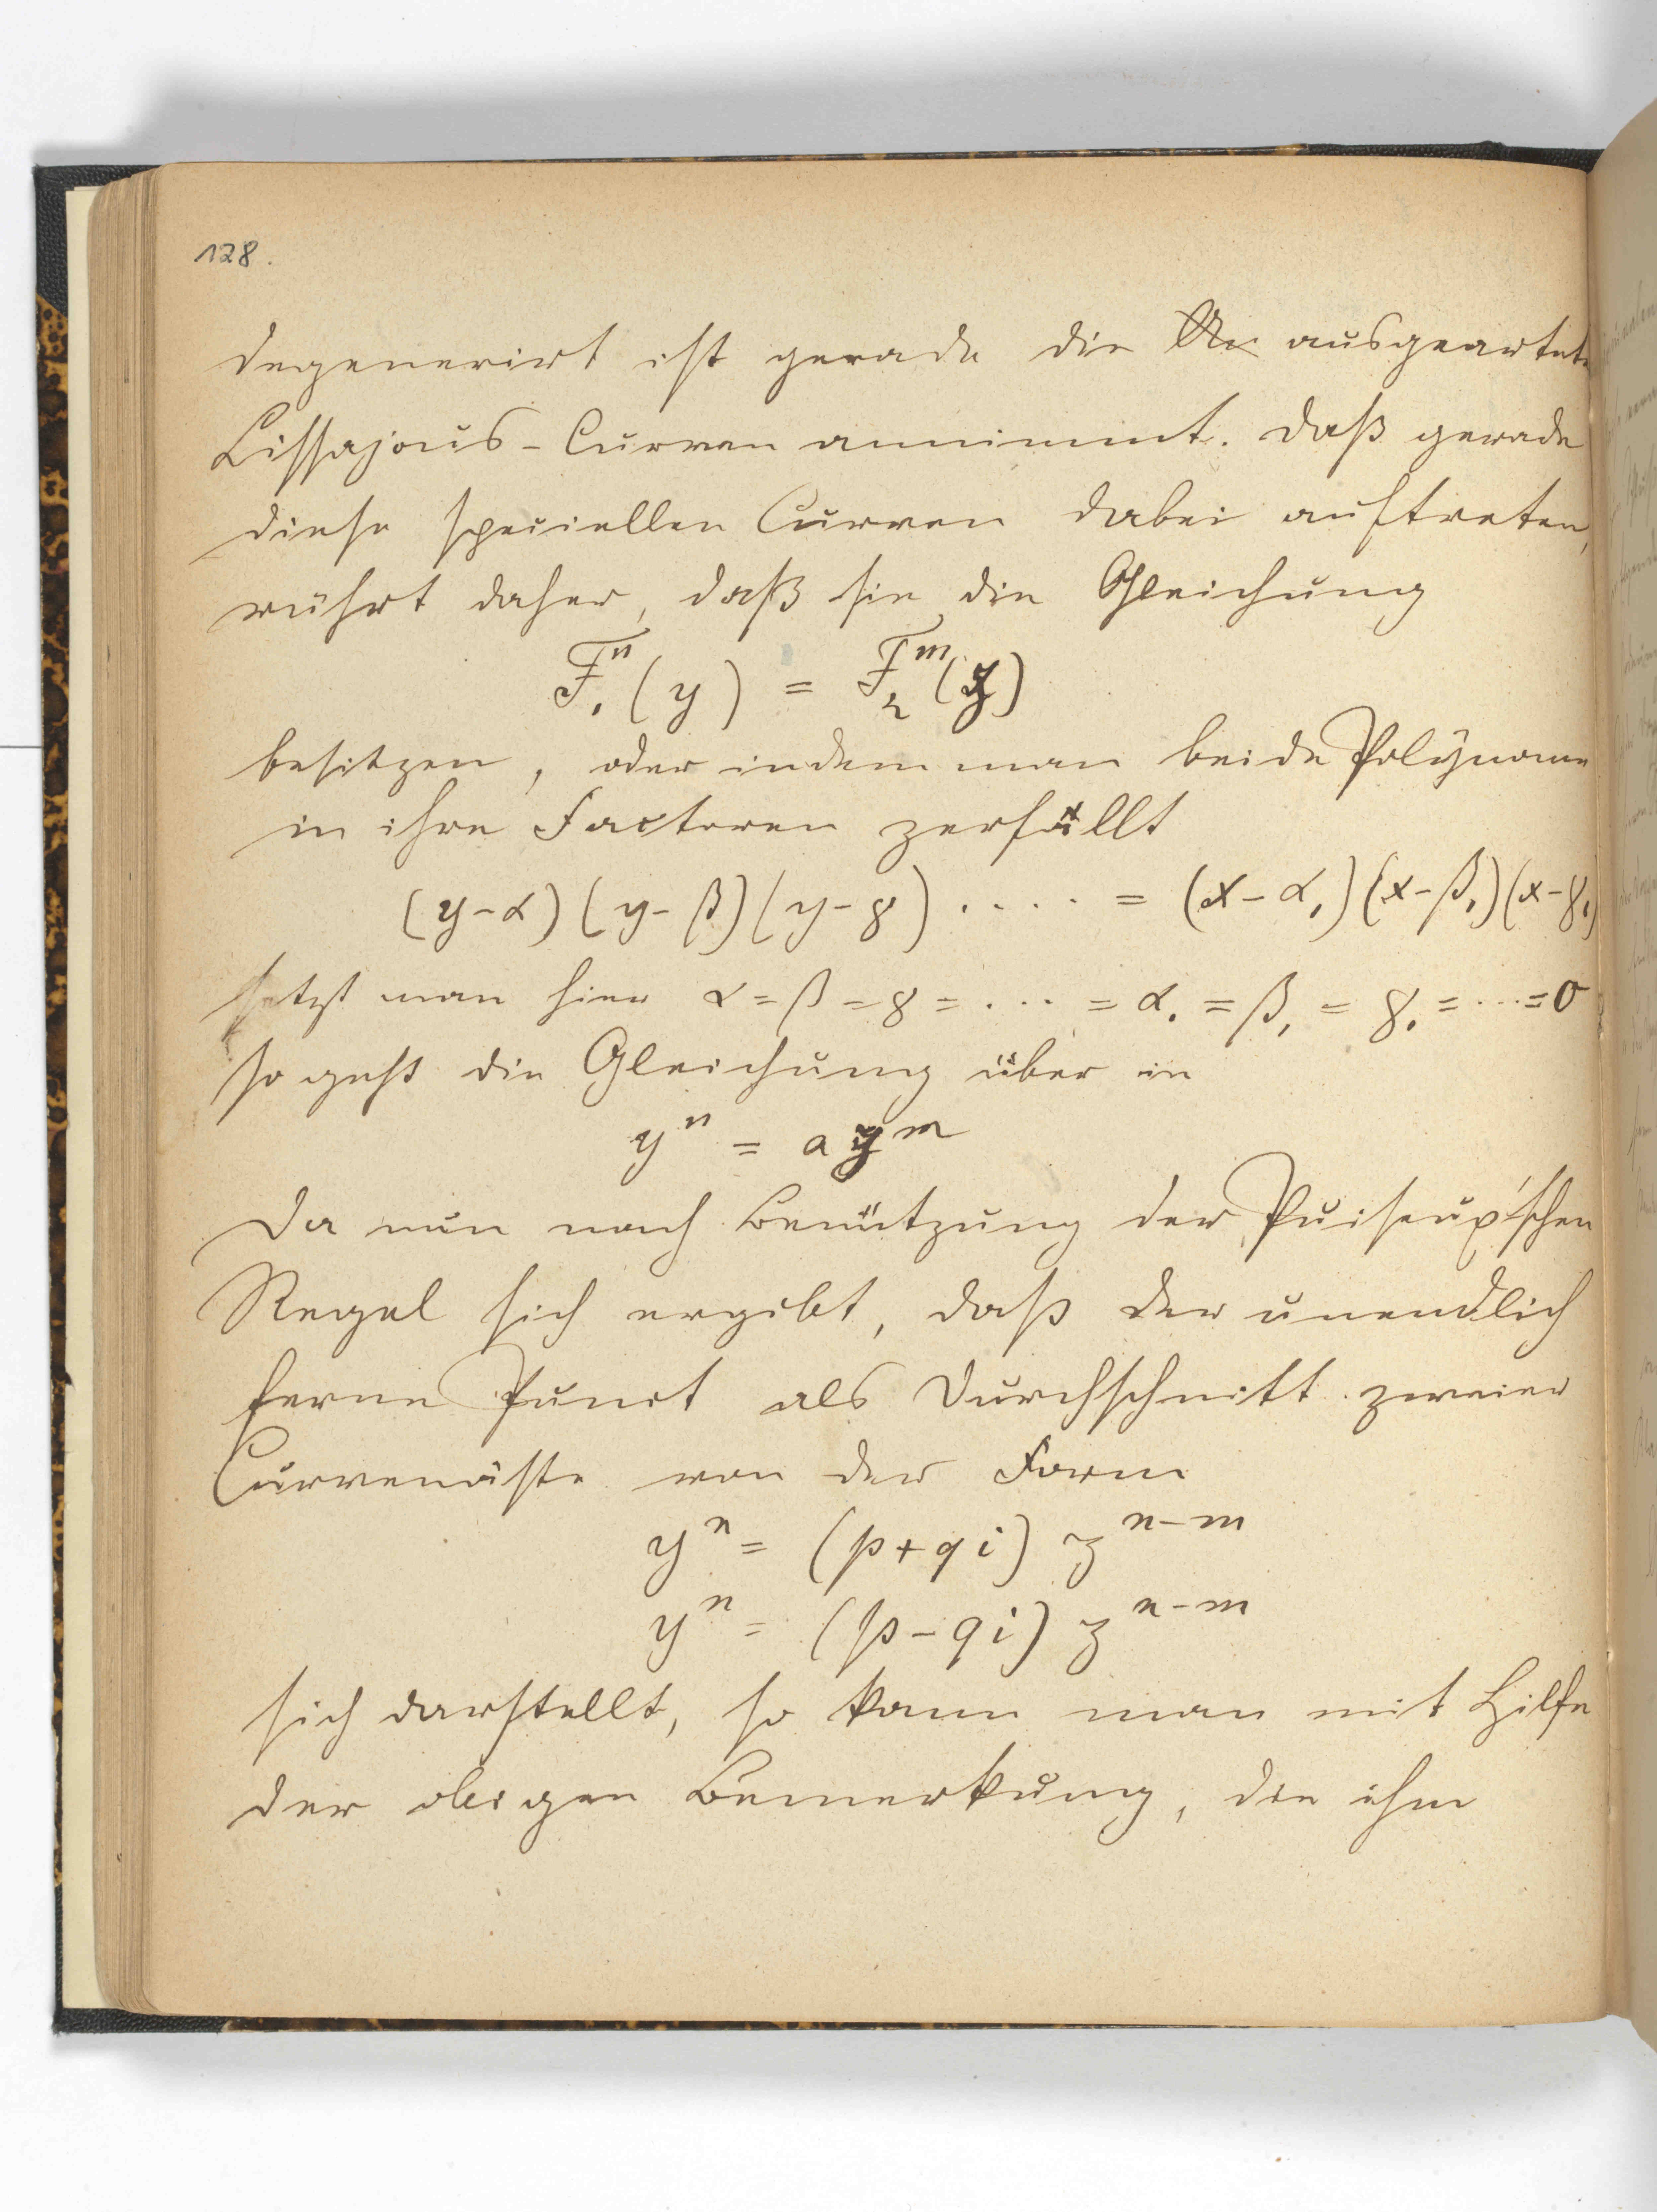 128.
degenerirt ist gerade die ausgeartete
Lissajous-Curven annimmt. Daß gerade
diese speciellen Curven dabei auftreten,
rührt daher, daß sie die Gleichung
F₁ⁿ(y) = F₂ᵐ(x)
besitzen, oder indem man beide Polynome
in ihre Factoren zerfällt
(y-α)(y-β)(y-γ)····=(x-α₁)(x-β₁)(x-γ₁)
setzt man hier α=β=γ=····=α₁=β₁=γ₁=···=0
so geht die Gleichung über in
yⁿ = a xᵐ
Da nun nach Benützung der Puiseux'schen
Regel sich ergibt, daß der unendlich
ferne Punct als Durchschnitt zweier
Curvenäste von der Form
yⁿ = (p+qi) zⁿ⁻ᵐ
yⁿ = (p-qi) zⁿ⁻ᵐ
sich darstellt, so kann man mit Hilfe
der obigen Bemerkung, die ihm